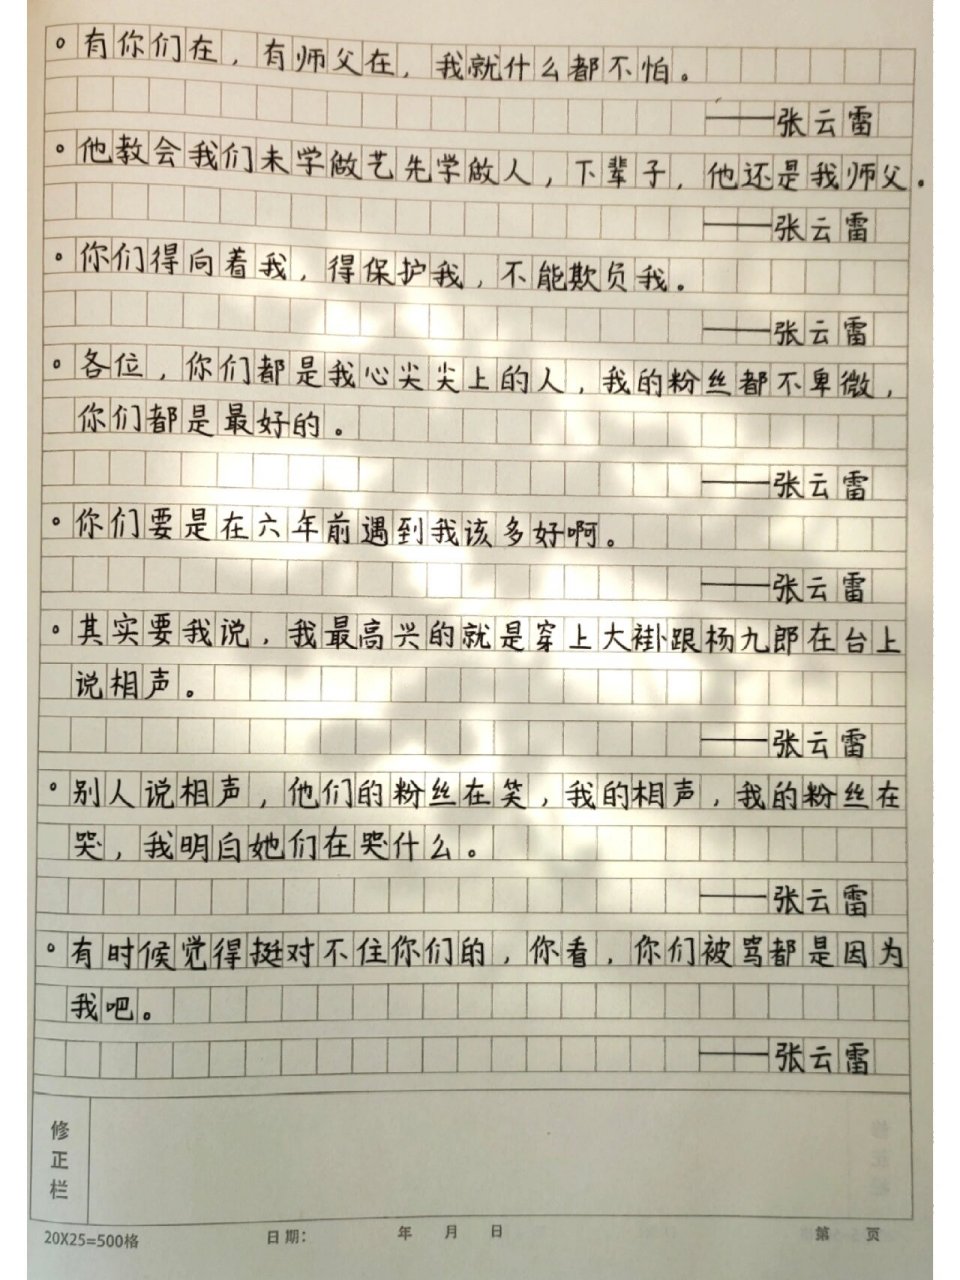 。有你们在，有师父在，我就什么都不怕。
——张云雷
。他教会我们未学做艺先学做人，下辈子，他还是我师父。
——张云雷
。你们得向着我，得保护我，不能欺负我。
——张云雷
。各位，你们都是我心尖尖上的人，我的粉丝都不卑微，
你们都是最好的。
——张云雷
。你们要是在六年前遇到我该多好啊。
——张云雷
。其实要我说，我最高兴的就是穿上大褂跟杨九郎在台上
说相声。
——张云雷
。别人说相声，他们的粉丝在笑，我的相声，我的粉丝在
哭，我明白她们在哭什么。
——张云雷
。有时候觉得挺对不住你们的，你看，你们被骂都是因为
我吧。
——张云雷
修正栏
20X25=500格 日期： 年 月 日 第 页